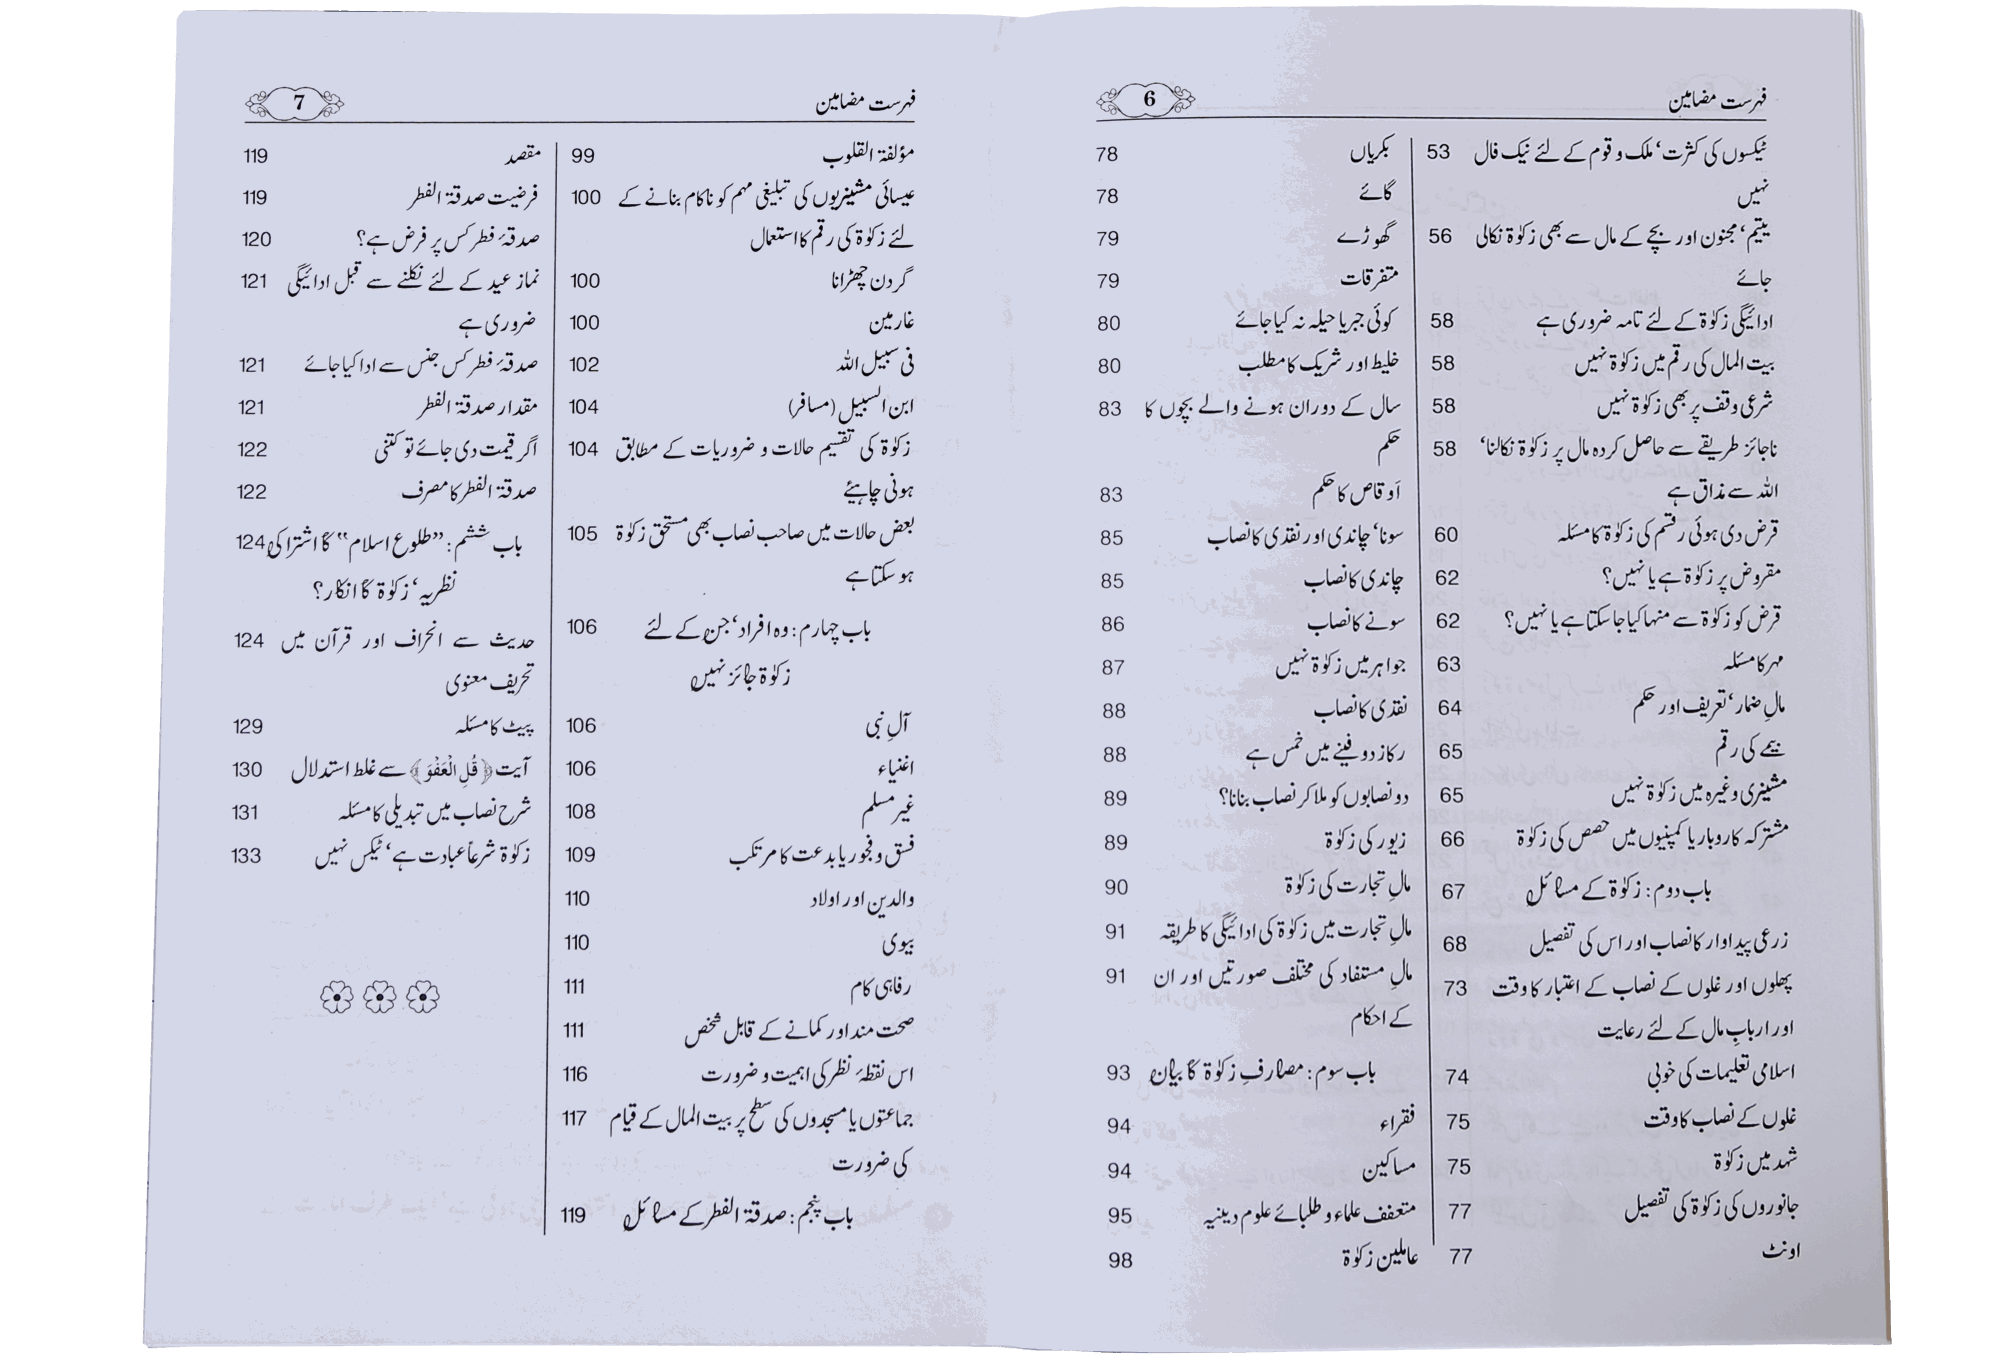 فہرست مضامین 6
ٹیکسوں کی کثرت‘ ملک و قوم کے لئے نیک فال 53
نہیں
یتیم‘ مجنون اور بچے کے مال سے بھی زکوٰۃ نکالی 56
جائے
ادائیگی زکوٰۃ کے لئے نامہ ضروری ہے 58
بیت المال کی رقم میں زکوٰۃ نہیں 58
شرعی وقف پر بھی زکوٰۃ نہیں 58
ناجائز طریقے سے حاصل کردہ مال پر زکوٰۃ نکالنا‘ 58
اللہ سے مذاق ہے
قرض دی ہوئی رقم کی زکوٰۃ کا مسئلہ 60
مقروض پر زکوٰۃ ہے یا نہیں؟ 62
قرض کو زکوٰۃ سے منہا کیا جا سکتا ہے یا نہیں؟ 62
مہر کا مسئلہ 63
مالِ ضمار‘ تعریف اور حکم 64
بیمے کی رقم 65
مشینری وغیرہ میں زکوٰۃ نہیں 65
مشترکہ کاروبار یا کمپنیوں میں حصص کی زکوٰۃ 66
باب دوم: زکوٰۃ کے مسائل 67
زرعی پیداوار کا نصاب اور اس کی تفصیل 68
پھلوں اور غلوں کے نصاب کے اعتبار کا وقت 73
اور اربابِ مال کے لئے رعایت
اسلامی تعلیمات کی خوبی 74
غلوں کے نصاب کا وقت 75
شہد میں زکوٰۃ 75
جانوروں کی زکوٰۃ کی تفصیل 77
اونٹ 77
بکریاں 78
گائے 78
گھوڑے 79
متفرقات 79
کوئی جبر یا حیلہ نہ کیا جائے 80
خلیط اور شریک کا مطلب 80
سال کے دوران ہونے والے بچوں کا 83
حکم
اَوقاص کا حکم 83
سونا‘ چاندی اور نقدی کا نصاب 85
چاندی کا نصاب 85
سونے کا نصاب 86
جواہر میں زکوٰۃ نہیں 87
نقدی کا نصاب 88
رکاز دوفینے میں خمس ہے 88
دو نصابوں کو ملا کر نصاب بنانا؟ 89
زیور کی زکوٰۃ 89
مالِ تجارت کی زکوٰۃ 90
مالِ تجارت میں زکوٰۃ کی ادائیگی کا طریقہ 91
مالِ مستفاد کی مختلف صورتیں اور ان 91
کے احکام
باب سوم: مصارفِ زکوٰۃ کا بیان 93
فقراء 94
مساکین 94
متعفف علماء و طلبائے علوم دینیہ 95
عاملین زکوٰۃ 98
فہرست مضامین 7
مؤلفۃ القلوب 99
عیسائی مشینریوں کی تبلیغی مہم کو ناکام بنانے کے 100
لئے زکوٰۃ کی رقم کا استعمال
گردن چھڑانا 100
غارمین 100
فی سبیل اللہ 102
ابن السبیل (مسافر) 104
زکوٰۃ کی تقسیم حالات و ضروریات کے مطابق 104
ہونی چاہیئے
بعض حالات میں صاحب نصاب بھی مستحق زکوٰۃ 105
ہو سکتا ہے
باب چہارم: وہ افراد‘ جن کے لئے 106
زکوٰۃ جائز نہیں
آلِ نبی 106
اغنیاء 106
غیر مسلم 108
فسق و فجور یا بدعت کا مرتکب 109
والدین اور اولاد 110
بیوی 110
رفاہی کام 111
صحت مند اور کمانے کے قابل شخص 111
اس نقطۂ نظر کی اہمیت و ضرورت 116
جماعتوں یا مسجدوں کی سطح پر بیت المال کے قیام 117
کی ضرورت
باب پنجم: صدقۃ الفطر کے مسائل 119
مقصد 119
فرضیت صدقۃ الفطر 119
صدقۂ فطر کس پر فرض ہے؟ 120
نماز عید کے لئے نکلنے سے قبل ادائیگی 121
ضروری ہے
صدقۂ فطر کس جنس سے ادا کیا جائے 121
مقدار صدقۃ الفطر 121
اگر قیمت دی جائے تو کتنی 122
صدقۃ الفطر کا مصرف 122
باب ششم: ”طلوع اسلام“ کا اشتراکی 124
نظریہ‘ زکوٰۃ کا انکار؟
حدیث سے انحراف اور قرآن میں 124
تحریف معنوی
پیٹ کا مسئلہ 129
آیت ﴿قُلِ الْعَفْوَ﴾ سے غلط استدلال 130
شرح نصاب میں تبدیلی کا مسئلہ 131
زکوٰۃ شرعاً عبادت ہے‘ ٹیکس نہیں 133